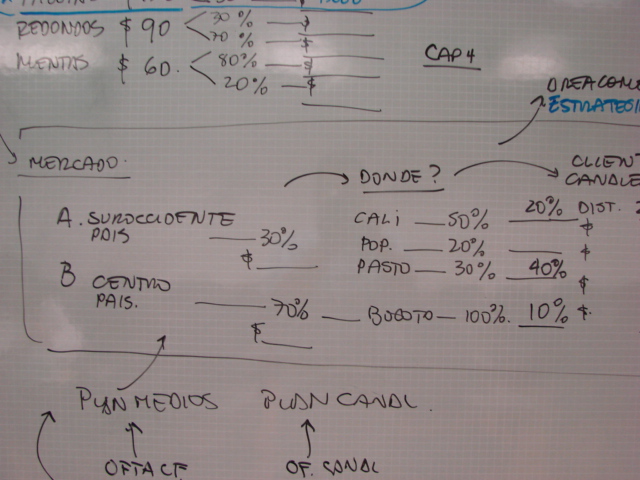 REDONDOS $ 90 < 30% — $
70% — $
MENTAS $ 60. < 80% — $
20% — $
CAP 4
ESTRATEGI
MERCADO. DONDE? CLIENT
CANALE
A. SUROCCIDENTE PAIS — 30% $
CALI — 50% 20% DIST. $
POP. — 20% $
PASTO — 30% 40% $
B CENTRO PAIS. — 70% $ — BOGOTO — 100%. 10% $.
PLAN MEDIOS PLAN CANAL.
OF. CANAL